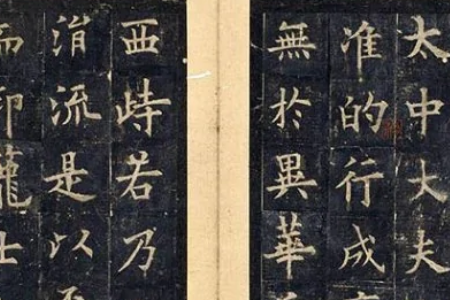 太中大夫
准的行成
無於異華
西峙若乃
涓流是以
而
士